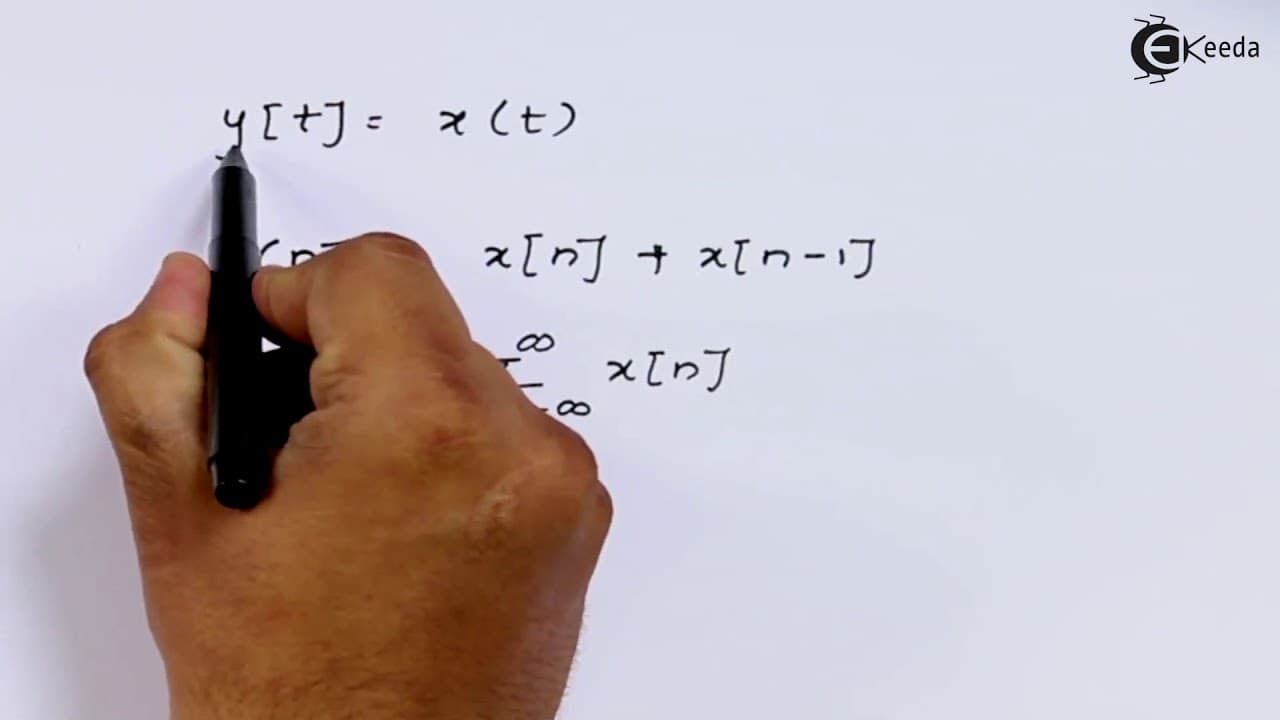 EKeeda
y[t] = x(t)
x[n] + x[n-1]
∞
x[n]
-∞